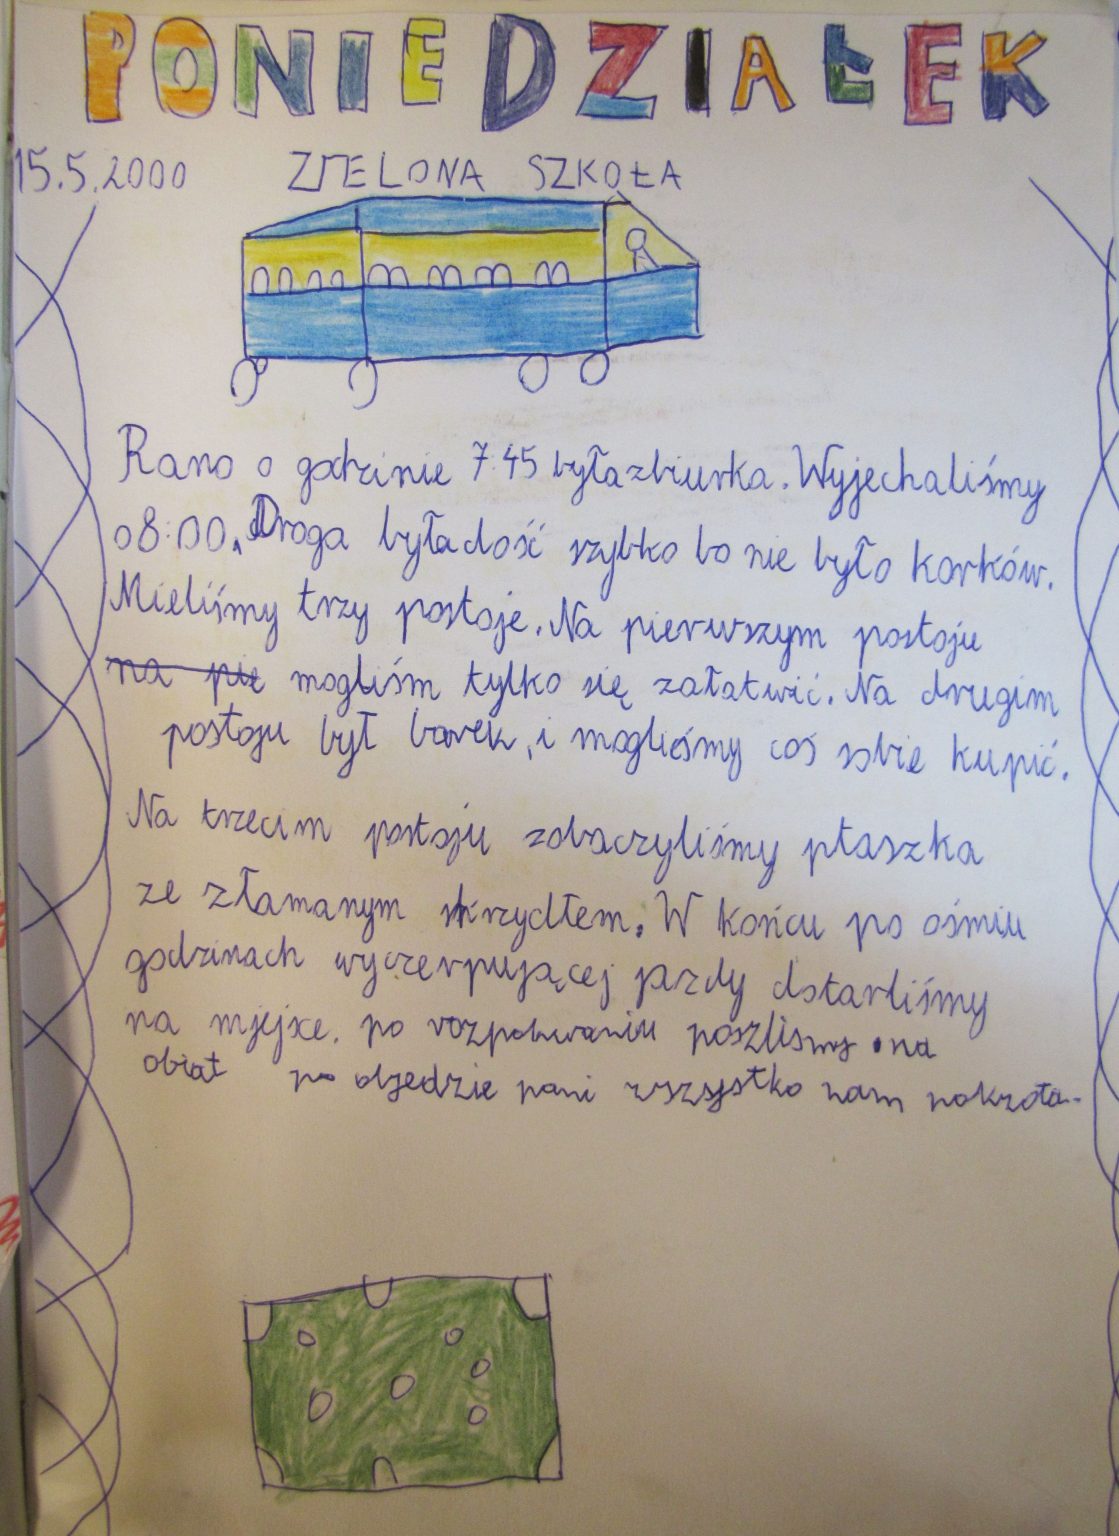 PONIEDZIAŁEK
15.5.2000 ZIELONA SZKOŁA
Rano o godzinie 7:45 była zbiurka. Wyjechaliśmy
o 8:00. Droga była dość szybko bo nie było korków.
Mieliśmy trzy postoje. Na pierwszym postoju
na pie mogliśm tylko się załatwić. Na drugim
postoju był barek, i mogliśmy coś sobie kupić.
Na trzecim postoju zobaczyliśmy ptaszka
ze złamanym skrzydłem. W końcu po ośmiu
godzinach wyczerpującej jazdy dotarliśmy
na miejsce. po rozpakowaniu poszliśmy na
obiat po objedzie pani wszsystko nam